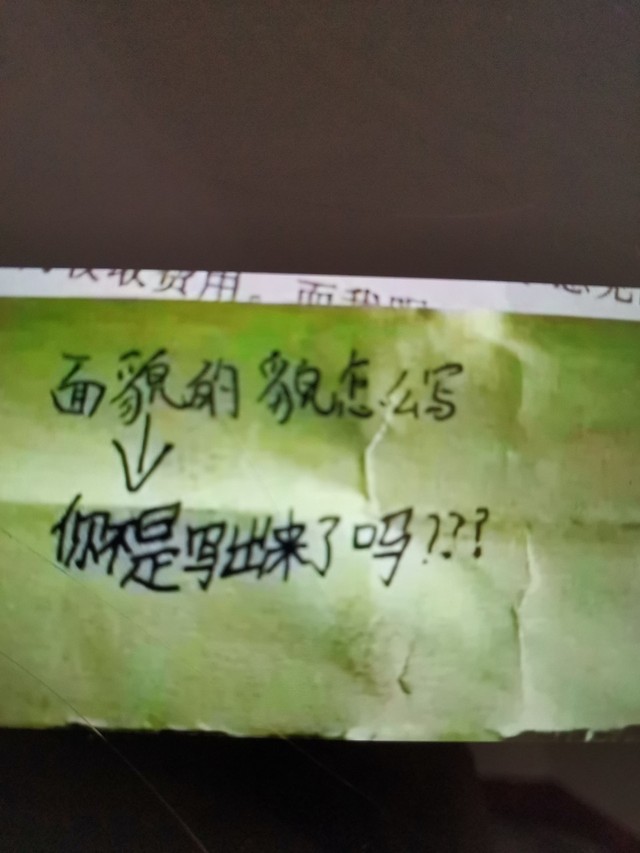 收取费用。而我
面貌的貌怎么写
你不是写出来了吗???